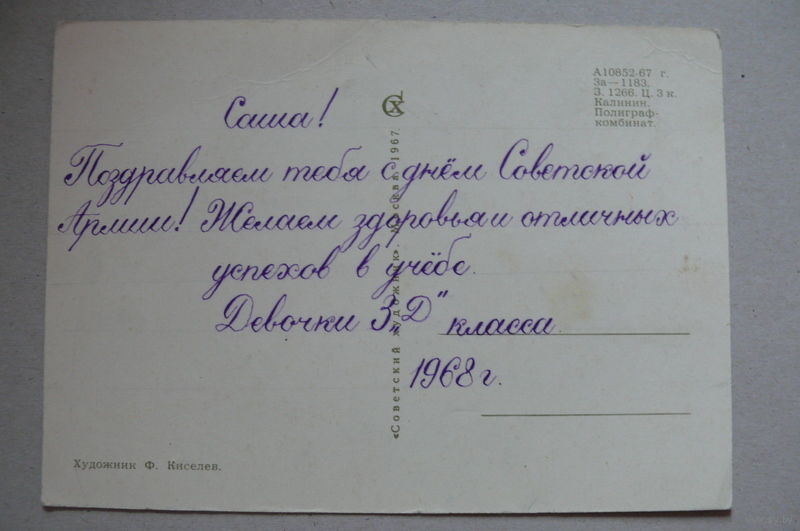 А10852-67 г.
За—1183.
З. 1266. Ц. 3 к.
Калинин.
Полиграф-
комбинат.
СХ
Саша!
Поздравляем тебя с днём Советской
Армии! Желаем здоровья и отличных
успехов в учёбе.
Девочки 3 „Д" класса
1968 г.
«Советский художник». Москва. 1967.
Художник Ф. Киселев.